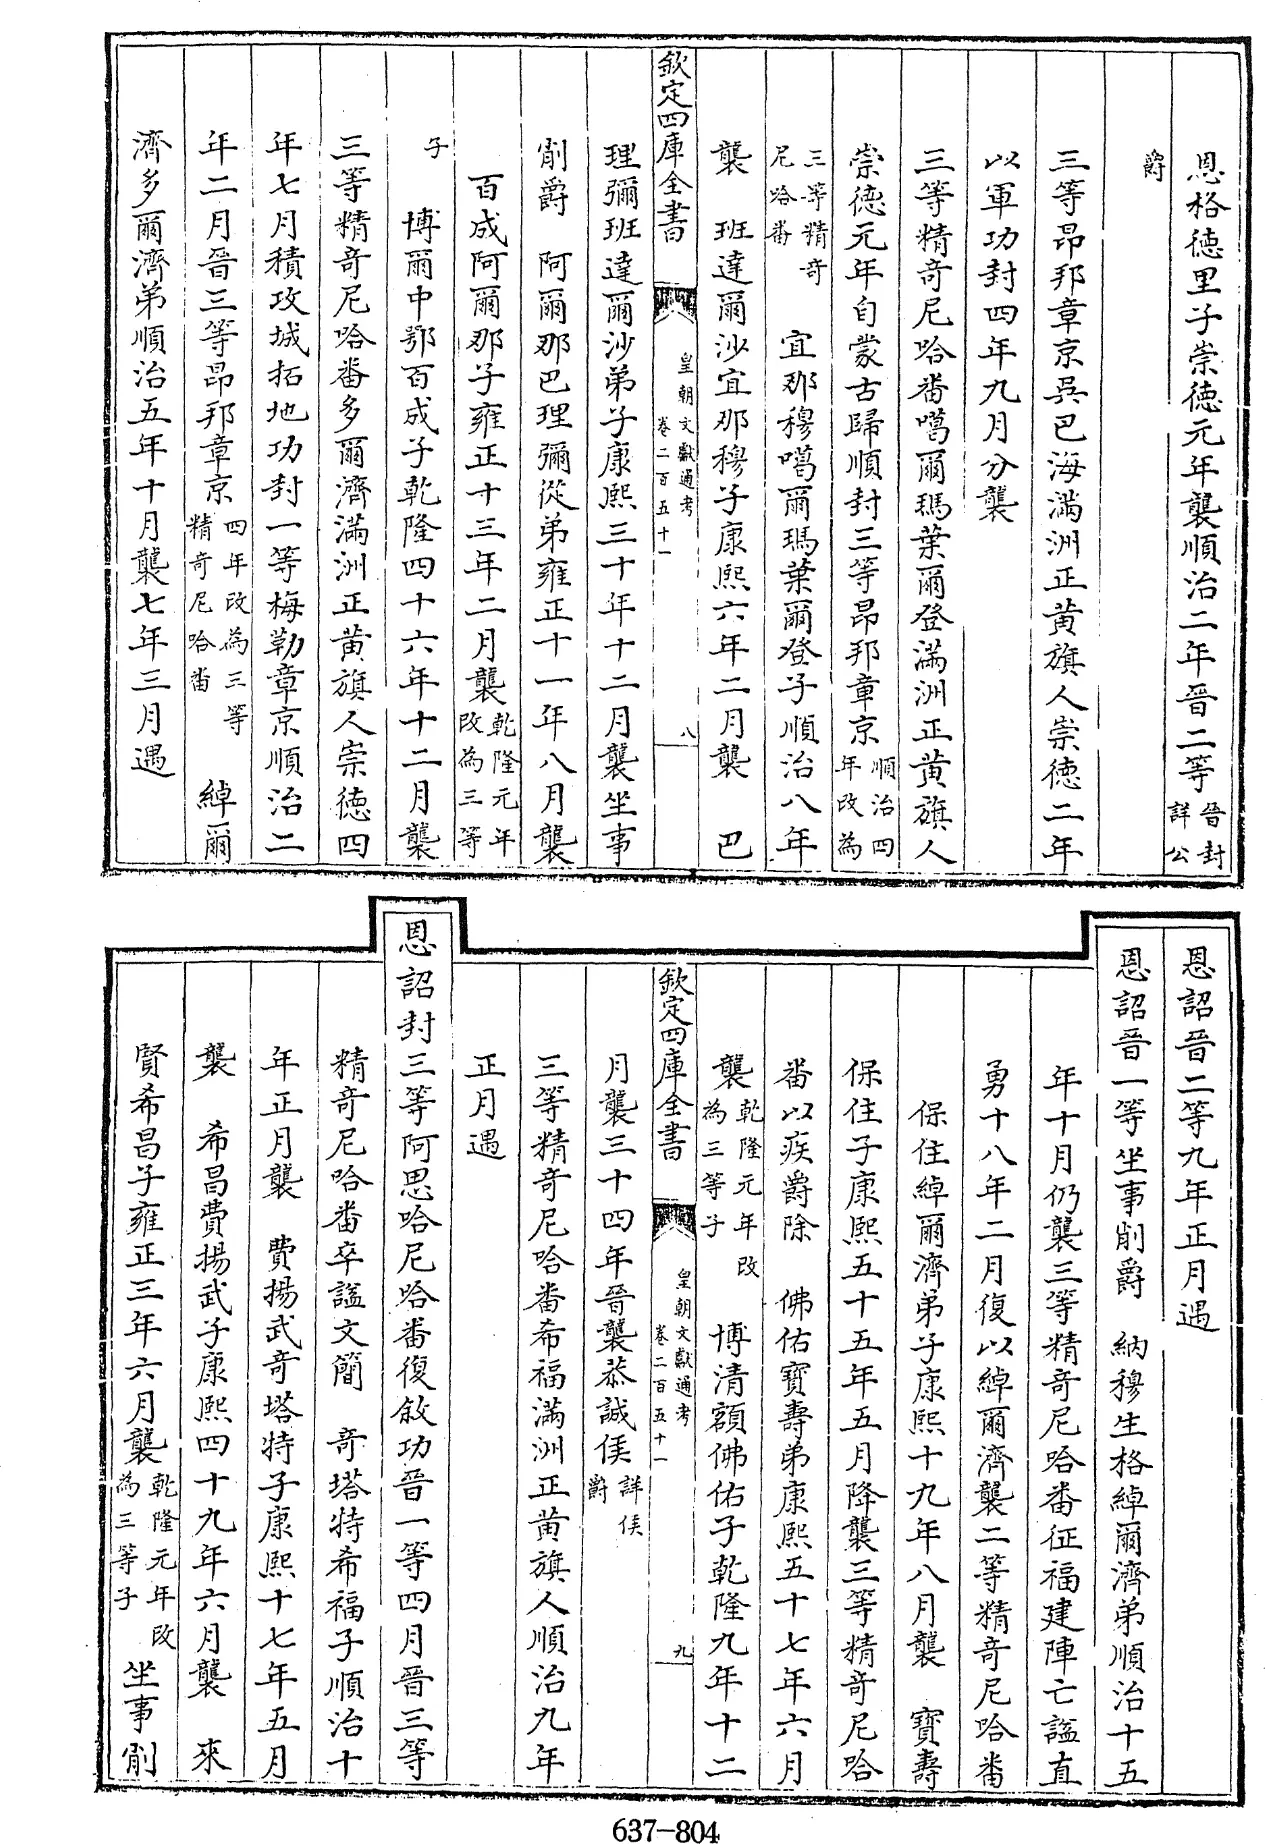 恩格德里子崇德元年襲順治二年晉二等晉封詳公
爵
三等昂邦章京吳巴海滿洲正黃旗人崇德二年
以軍功封四年九月分襲
三等精奇尼哈番噶爾瑪葉爾登滿洲正黃旗人
崇德元年自蒙古歸順封三等昂邦章京順治四年改為
三等精奇尼哈番　宜那穆噶爾瑪葉爾登子順治八年
襲　班達爾沙宜那穆子康熙六年二月襲　巴
欽定四庫全書　皇朝文獻通考卷二百五十一　八
理彌班達爾沙弟子康熙三十年十二月襲坐事
削爵　阿爾那巴理彌從弟雍正十一年八月襲
百成阿爾那子雍正十三年二月襲乾隆元年改為三等
子　博爾中鄂百成子乾隆四十六年十二月襲
三等精奇尼哈番多爾濟滿洲正黃旗人崇德四
年七月積攻城拓地功封一等梅勒章京順治二
年二月晉三等昂邦章京四年改為三等精奇尼哈番　綽爾
濟多爾濟弟順治五年十月襲七年三月遇
恩詔晉二等九年正月遇
恩詔晉一等坐事削爵　納穆生格綽爾濟弟順治十五
年十月仍襲三等精奇尼哈番征福建陣亡謚直
勇十八年二月復以綽爾濟襲二等精奇尼哈番
保住綽爾濟弟子康熙十九年八月襲　寶壽
保住子康熙五十五年五月降襲三等精奇尼哈
番以疾爵除　佛佑寶壽弟康熙五十七年六月
襲乾隆元年改為三等子　博清額佛佑子乾隆九年十二
欽定四庫全書　皇朝文獻通考卷二百五十一　九
月襲三十四年晉襲恭誠侯詳侯爵
三等精奇尼哈番希福滿洲正黃旗人順治九年
正月遇
恩詔封三等阿思哈尼哈番復敘功晉一等四月晉三等
精奇尼哈番卒謚文簡　奇塔特希福子順治十
年正月襲　費揚武奇塔特子康熙十七年五月
襲　希昌費揚武子康熙四十九年六月襲　來
賢希昌子雍正三年六月襲乾隆元年改為三等子　坐事削
637-804